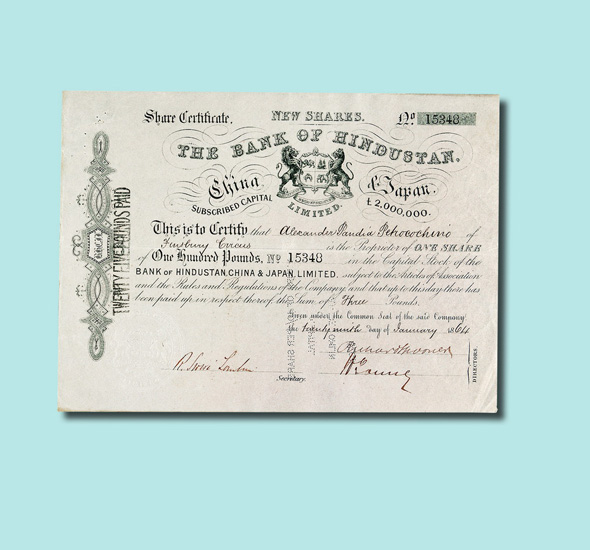 Share Certificate. NEW SHARES. No 15348
THE BANK OF HINDUSTAN.
China & Japan.
SUBSCRIBED CAPITAL £2,000,000.
LIMITED.
This is to Certify that Alexander Pandia Petrocochino of
Finsbury Circus is the Proprietor of ONE SHARE
of One Hundred Pounds, No 15348 in the Capital Stock of the
BANK OF HINDUSTAN, CHINA & JAPAN, LIMITED. subject to the Articles of Association
and the Rules and Regulations of the Company and that up to this day there has
been paid up in respect thereof the Sum of Three Pounds.
Given under the Common Seal of the said Company
the twenty ninth day of January 1864
DIRECTORS.
Secretary.
TWENTY FIVE POUNDS PAID